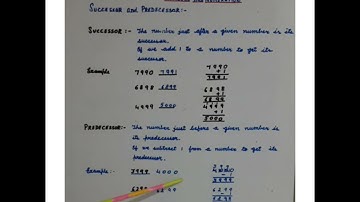 SUCCESSOR AND PREDECESSOR:-
SUCCESSOR:- The number just after a given number is its
successor.
If we add 1 to a number to get its
successor.
Example 7990 7991 7990
+1
7991
6898 6899 6898
+1
6899
4999 5000 4999
+1
5000
PREDECESSOR:- The number just before a given number is
its predecessor.
If we subtract 1 from a number to get its
predecessor.
Example:- 3999 4000 4000
-1
3999
6299
-1